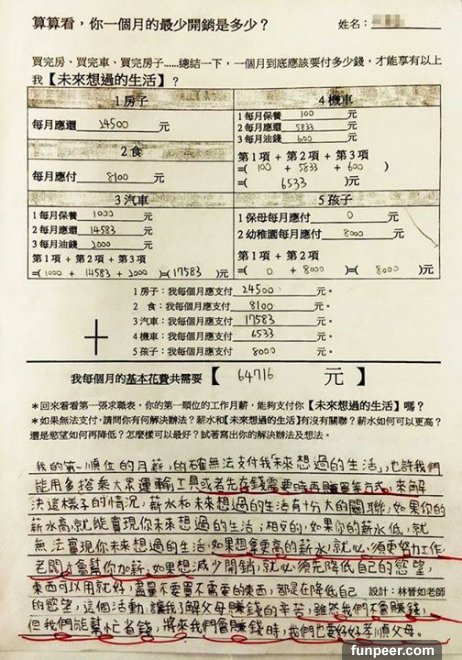 算算看，你一個月的最少開銷是多少？ 姓名：
買完房、買完車、買完房子……總結一下，一個月到底應該要付多少錢，才能享有以上
我【未來想過的生活】？
1 房子
每月應還 24500 元
2 食
每月應付 8100 元
3 汽車
1 每月保養 1000 元
2 每月應還 14583 元
3 每月油錢 2000 元
第 1 項 + 第 2 項 + 第 3 項
=( 1000 + 14583 + 2000 )=( 17583 )元
4 機車
1 每月保養 100 元
2 每月應還 5833 元
3 每月油錢 600 元
第 1 項 + 第 2 項 + 第 3 項
=( 100 + 5833 + 600 )
=( 6533 )元
5 孩子
1 保母每月應付 0 元
2 幼稚園每月應付 8000 元
第 1 項 + 第 2 項
=( 0 + 8000 )=( 8000 )元
1 房子：我每個月應支付 24500 元。
2 食：我每個月應支付 8100 元。
3 汽車：我每個月應支付 17583 元。
4 機車：我每個月應支付 6533 元。
+ 5 孩子：我每個月應支付 8000 元。
我每個月的基本花費共需要【 64716 元 】
＊回來看看第一張求職表，你的第一順位的工作月薪，能夠支付你【未來想過的生活】嗎？
＊如果無法支付，請問你有何解決辦法？薪水和【未來想過的生活】有沒有關聯？薪水如何可以更高？
還是慾望如何再降低？怎麼樣可以最好？試著寫出你的解決辦法及想法。
我的第一順位的月薪，的確無法支付我「未來想過的生活」，也許我們
能用多搭乘大眾運輸工具或者先存錢需要時再購買等方式，來解
決這樣子的情況，薪水和未來想過的生活有十分大的關聯，如果你的
薪水高，就能實現你未來想過的生活；相反的，如果你的薪水低，就
無法實現你未來想過的生活，如果想會更高的薪水，就必須更努力工作，
老闆才會幫你加薪；如果想減少開銷，就必須先降低自己的慾望，
東西可以用就好，盡量不要買不需要的東西，都是在降低自己
設計：林晉如老師
的慾望，這個活動，讓我了解父母賺錢的辛苦，雖然我們不會賺錢，
但我們能幫忙省錢，將來我們會賺錢時，我們也要好好孝順父母。
funpeer.com